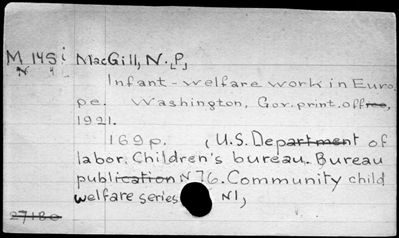 M 145i MacGill, N. [P.]
N 4
Infant-welfare work in Euro
pe. Washington, Gov. print. office,
1921.
169 p. (U.S. Department of
labor. Children's bureau. Bureau
publication N 76. Community child
welfare series N1)
27180